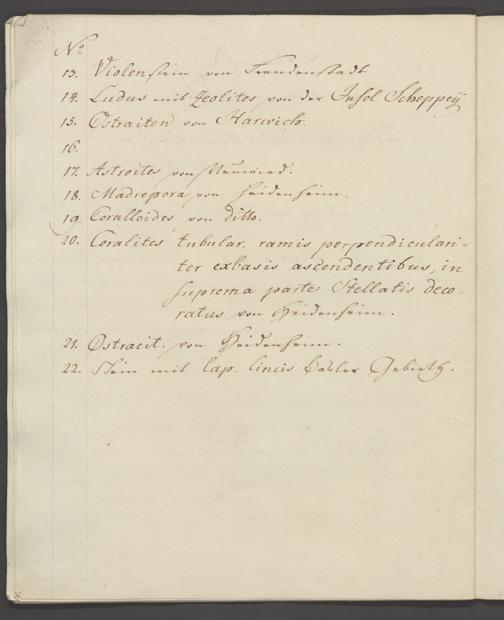 No
13. Violenstein von Freudenstadt
14. Ludus mit Zeolites von der Insel Scheppey
15. Ostraiten von Harwich.
16.
17. Astroites von
18. Madrepora von Heidenheim.
19. Coralloides von ditto.
20. Coralites tubular. ramis perpendiculari-
ter exbasis ascendentibus, in
suprema parte Stellatis deco-
ratus von Heidenheim.
21. Ostracit. von Heidenheim.
22. Stein mit Cap. Lincis Basler Gebieth.